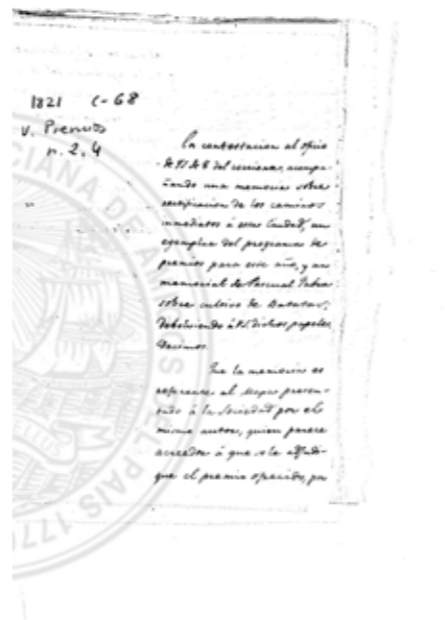 1821 C-68
V. Premios
n. 2, 4
En contestacion al oficio
de VS. de 6 del corriente, acompa-
ñando una memoria sobre
rectificacion de los caminos
inmediatos à esta Ciudad, un
egemplar del programa de
premios para este año, y un
memorial de Pascual
sobre cultivo de Batatas;
debolviendo à VS. dichos papeles,
Decimos.
Que la memoria es
referente al Mapa presen-
tado à la Sociedad por el
mismo autor, quien parece
acreedor à que se le adjudi-
que el premio ofrecido, por
CIANA DE A
S DEL PAIS 177